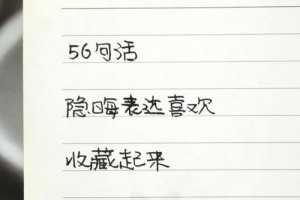 56句话
隐晦表达喜欢
收藏起来